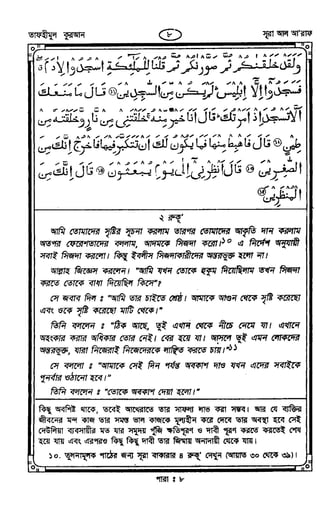 তাফহীমুল কুরআন
৮
সূরা আল আ'রাফ
وَلَقَدْ خَلَقْنٰكُمْ ثُمَّ صَوَّرْنٰكُمْ ثُمَّ قُلْنَا لِلْمَلٰٓئِكَةِ اسْجُدُوْا لِاٰدَمَ ۖ
فَسَجَدُوْٓا اِلَّآ اِبْلِيْسَ ؕ لَمْ يَكُنْ مِّنَ السّٰجِدِيْنَ ⑪ قَالَ مَا مَنَعَكَ
اَلَّا تَسْجُدَ اِذْ اَمَرْتُكَ ؕ قَالَ اَنَا خَيْرٌ مِّنْهُ ۚ خَلَقْتَنِيْ مِنْ نَّارٍ وَّخَلَقْتَهٗ مِنْ
طِيْنٍ ⑫ قَالَ فَاهْبِطْ مِنْهَا فَمَا يَكُوْنُ لَكَ اَنْ تَتَكَبَّرَ فِيْهَا فَاخْرُجْ اِنَّكَ مِنَ
الصّٰغِرِيْنَ ⑬ قَالَ اَنْظِرْنِيْٓ اِلٰى يَوْمِ يُبْعَثُوْنَ ⑭ قَالَ اِنَّكَ مِنَ
الْمُنْظَرِيْنَ ⑮
২ রুকূ'
আমি তোমাদের সৃষ্টির সূচনা করলাম তারপর তোমাদের আকৃতি দান করলাম
অতপর ফেরেশতাদের বললাম, আদমকে সিজদা করো।১০ এ নির্দেশ অনুযায়ী
সবাই সিজদা করলো। কিন্তু ইবলীস সিজদাকারীদের অন্তরভুক্ত হলো না।
আল্লাহ জিজ্ঞেস করলেন। "আমি যখন তোকে হুকুম দিয়েছিলাম তখন সিজদা
করতে তোকে বাধা দিয়েছিল কিসে"?
সে জবাব দিল : "আমি তার চাইতে শ্রেষ্ঠ। আমাকে আগুন থেকে সৃষ্টি করেছো
এবং ওকে সৃষ্টি করেছো মাটি থেকে।"
তিনি বললেন : "ঠিক আছে, তুই এখান থেকে নীচে নেমে যা। এখানে
অহংকার করার অধিকার তোর নেই। বের হয়ে যা। আসলে তুই এমন লোকদের
অন্তরভুক্ত, যারা নিজেরাই নিজেদেরকে লাঞ্ছিত করতে চায়।"১১
সে বললো : "আমাকে সেই দিন পর্যন্ত অবকাশ দাও যখন এদের সবাইকে
পুনর্বার ওঠানো হবে।"
তিনি বললেন : "তোকে অবকাশ দেয়া হলো।"
কিছু অবশিষ্ট থাকে, তবেই আখেরাতে তার সাফল্য লাভ করা সম্ভব। আর যে ব্যক্তির
জীবনের মন্দ কাজ তার সমস্ত ভাল কাজকে মূল্যহীন করে দেবে তার অবস্থা হবে সেই
দেউলিয়া ব্যবসায়ীর মত যার সমুদয় পুঁজি ক্ষতিপূরণ ও দাবী পূরণ করতে করতেই শেষ
হয়ে যায় এবং এরপরও কিছু কিছু দাবী তার জিম্মায় অনাদায়ী থেকে যায়।
১০. তুলনামূলক পাঠের জন্য সূরা বাকারার ৪ রুকূ' দেখুন (আয়াত ৩০ থেকে ৩৯)।
পারা : ৮